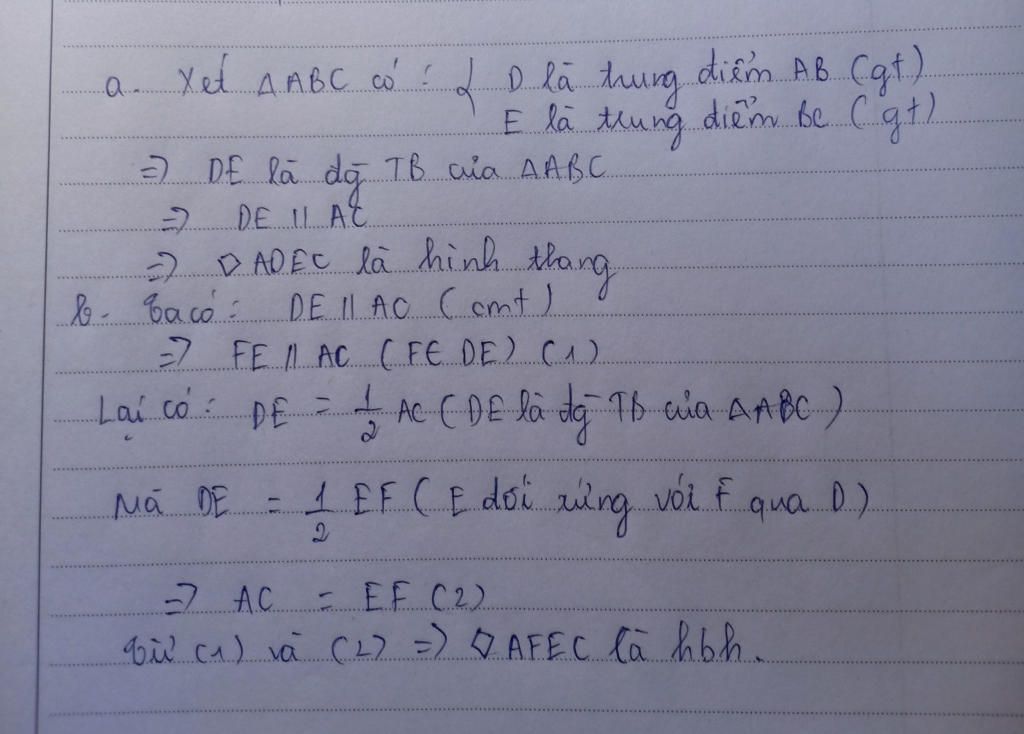 a. Xét △ABC có : { D là trung điểm AB (gt)
E là trung điểm BC (gt)
=> DE là đg TB của △ABC
=> DE // AC
=> ◇ADEC là hình thang
b. Ta có : DE // AC (cmt)
=> FE // AC (F∈ DE) (1)
Lại có : DE = 1/2 AC (DE là đg TB của △ABC)
Mà DE = 1/2 EF (E đối xứng với F qua D)
=> AC = EF (2)
Từ (1) và (2) => ◇AFEC là hbh.